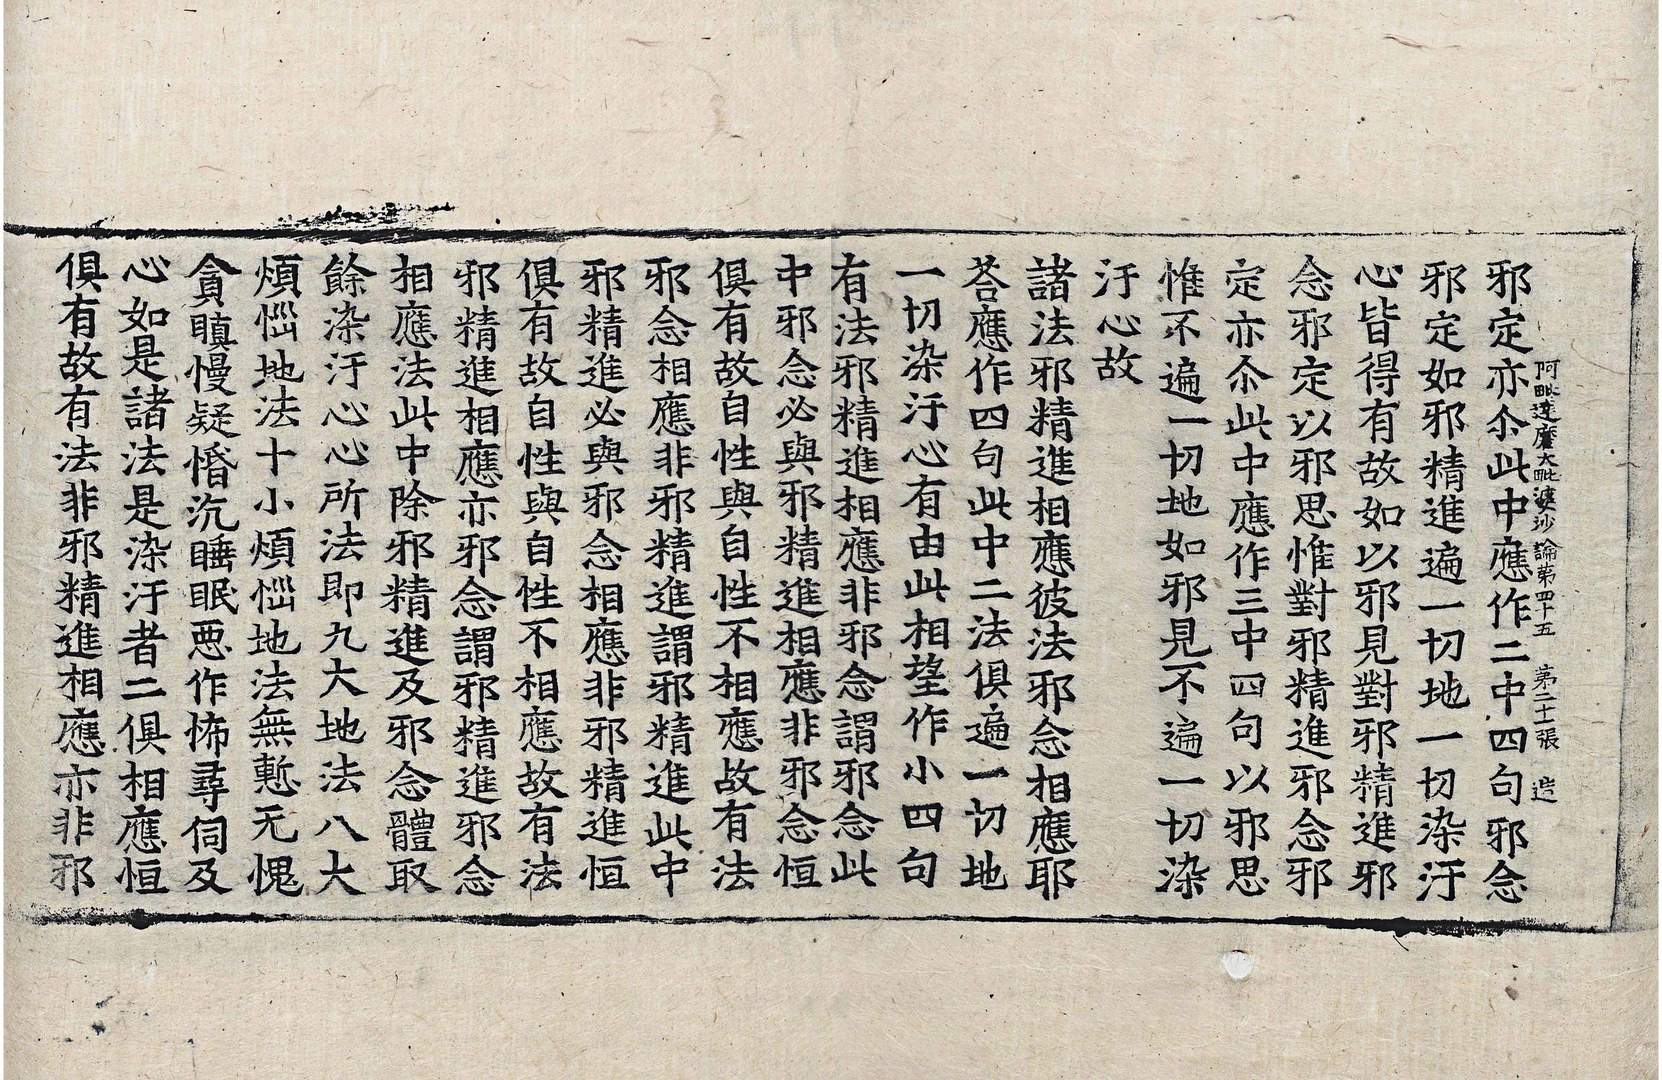 阿毗達磨大毗婆沙論第四十五　第二十張　造
邪定亦尒此中應作二中四句邪念
邪定如邪精進遍一切地一切染汙
心皆得有故如以邪見對邪精進邪
念邪定以邪思惟對邪精進邪念邪
定亦尒此中應作三中四句以邪思
惟不遍一切地如邪見不遍一切染
汙心故
諸法邪精進相應彼法邪念相應耶
荅應作四句此中二法俱遍一切地
一切染汙心有由此相望作小四句
有法邪精進相應非邪念謂邪念此
中邪念必與邪精進相應非邪念恒
俱有故自性與自性不相應故有法
邪念相應非邪精進謂邪精進此中
邪精進必與邪念相應非邪精進恒
俱有故自性與自性不相應故有法
邪精進相應亦邪念謂邪精進邪念
相應法此中除邪精進及邪念體取
餘染汙心心所法即九大地法八大
煩惱地法十小煩惱地法無慙无愧
貪瞋慢疑惛沉睡眠惡作怖尋伺及
心如是諸法是染汙者二俱相應恒
俱有故有法非邪精進相應亦非邪